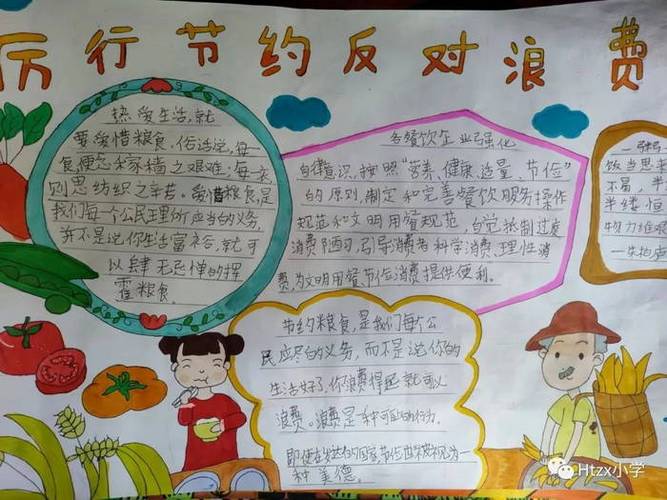 厉行节约反对浪费
热爱生活,就
要爱惜粮食。俗话说,每
食便念稼穑之艰难,每衣
则思纺织之辛苦。爱惜粮食,是
我们每个公民理所应当的义务,
并不是说你生活富裕,就可
以肆无忌惮的挥
霍粮食。
各餐饮企业强化
自律意识,按照“营养、健康、适量、节俭”
的原则,制定和完善餐饮服务操作
规范和文明用餐规范,自觉抵制过度
消费陋习,引导消费者科学消费、理性消
费,为文明用餐、节俭消费提供便利。
一粥一
饭当思
不易,半
半缕恒
物力维艰
—朱柏庐
节约粮食,是我们每个公
民应尽的义务,而不是说你的
生活好了,你浪费得起就可以
浪费。浪费是一种可耻的行为。
即使在发达的国家,节俭也被视为一
种美德。
Htzx小学